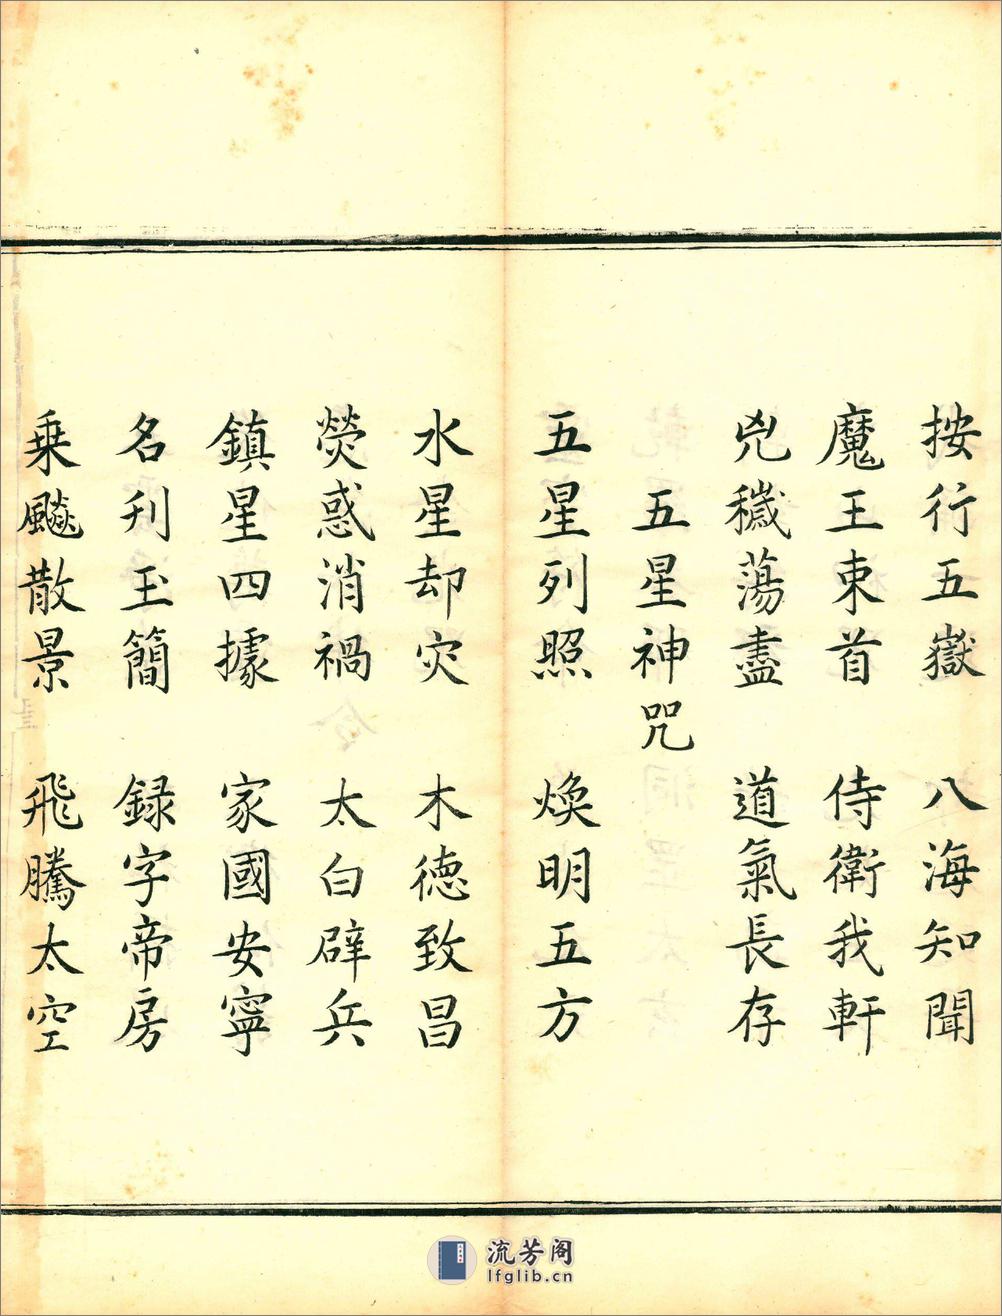 按行五嶽 八海知聞
魔王束首 侍衛我軒
兇穢蕩盡 道氣長存
五星神咒
五星列照 煥明五方
水星却灾 木德致昌
熒惑消禍 太白辟兵
鎮星四據 家國安寧
名刋玉簡 録字帝房
乗飈散景 飛騰太空
流芳阁
lfglib.cn